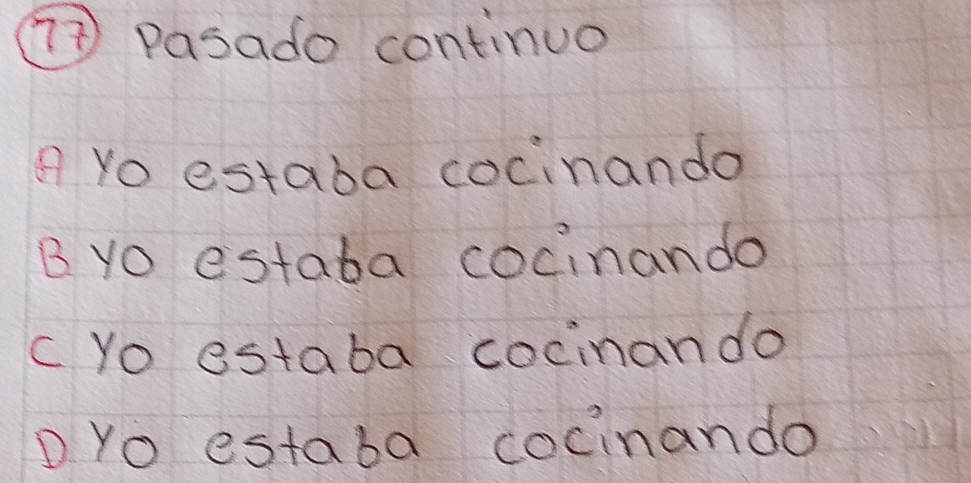 77 Pasado continuo
A Yo estaba cocinando
B yo estaba cocinando
C Yo estaba cocinando
D Yo estaba cocinando